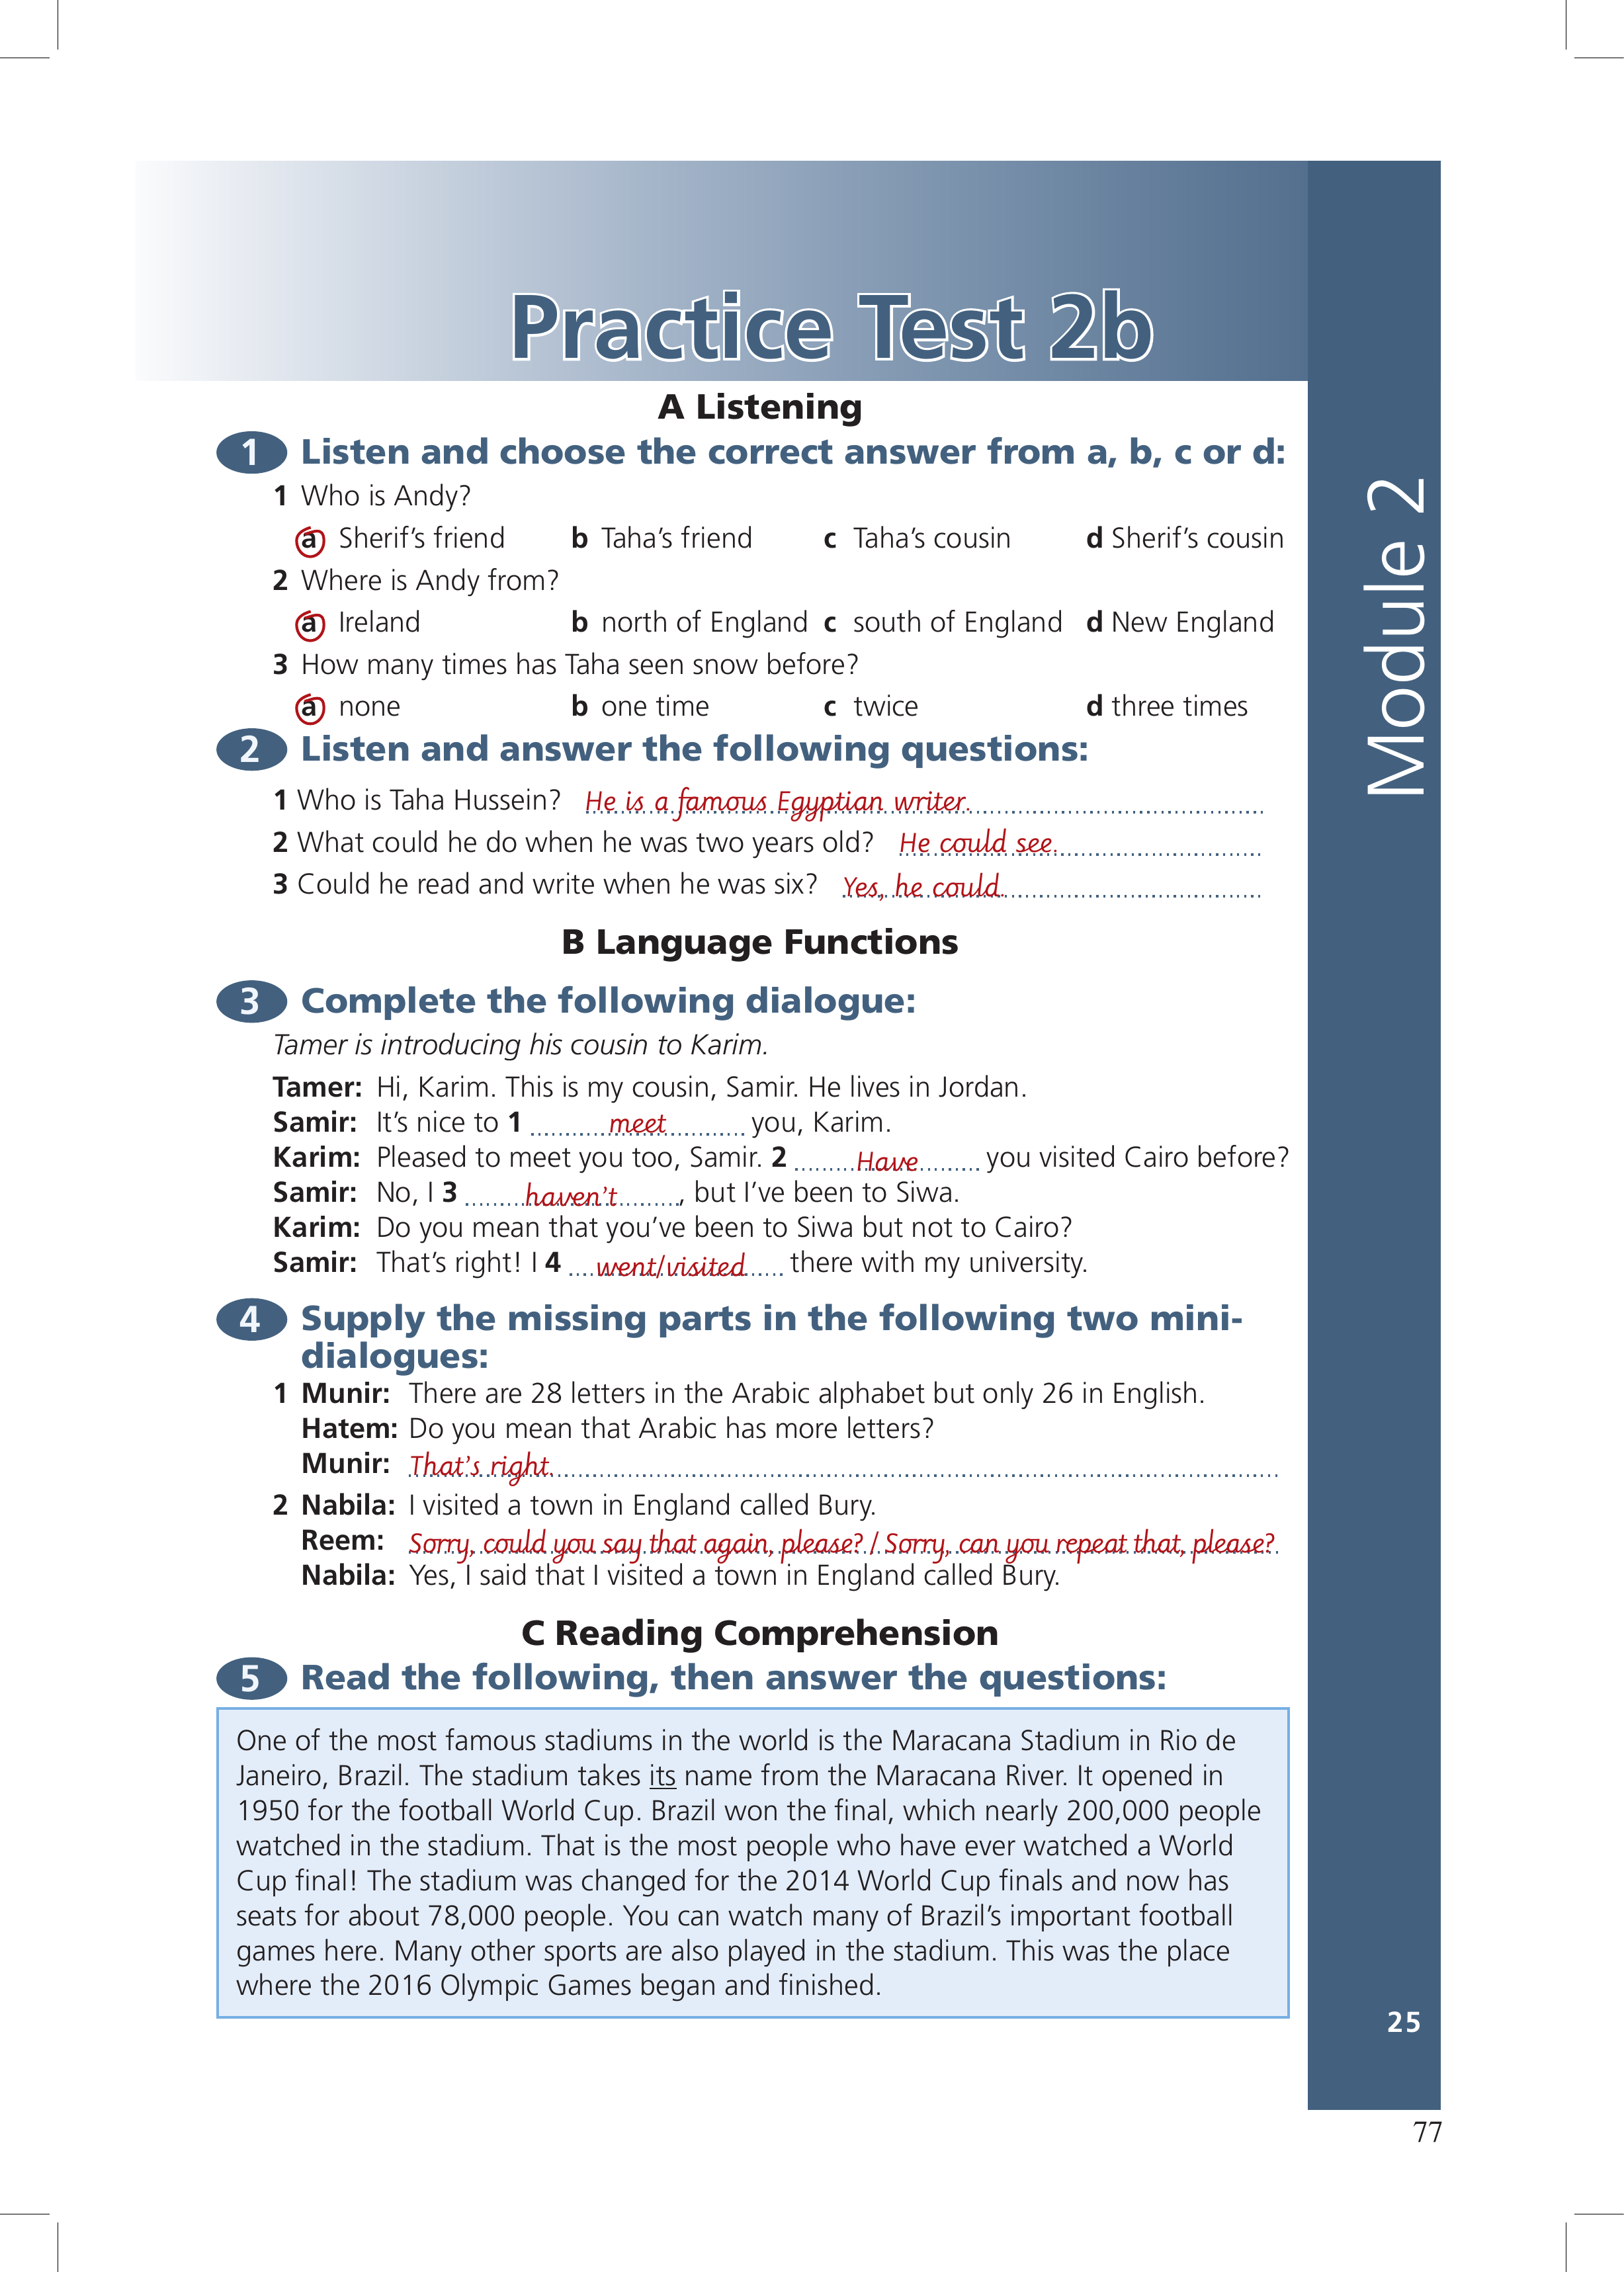 Practice Test 2b
Module 2
A Listening
1 Listen and choose the correct answer from a, b, c or d:
1 Who is Andy?
a Sherif’s friend b Taha’s friend c Taha’s cousin d Sherif’s cousin
2 Where is Andy from?
a Ireland b north of England c south of England d New England
3 How many times has Taha seen snow before?
a none b one time c twice d three times
2 Listen and answer the following questions:
1 Who is Taha Hussein? He is a famous Egyptian writer.
2 What could he do when he was two years old? He could see.
3 Could he read and write when he was six? Yes, he could.
B Language Functions
3 Complete the following dialogue:
Tamer is introducing his cousin to Karim.
Tamer: Hi, Karim. This is my cousin, Samir. He lives in Jordan.
Samir: It’s nice to 1 meet you, Karim.
Karim: Pleased to meet you too, Samir. 2 Have you visited Cairo before?
Samir: No, I 3 haven’t, but I’ve been to Siwa.
Karim: Do you mean that you’ve been to Siwa but not to Cairo?
Samir: That’s right! I 4 went/visited there with my university.
4 Supply the missing parts in the following two mini-
dialogues:
1 Munir: There are 28 letters in the Arabic alphabet but only 26 in English.
Hatem: Do you mean that Arabic has more letters?
Munir: That’s right.
2 Nabila: I visited a town in England called Bury.
Reem: Sorry, could you say that again, please? / Sorry, can you repeat that, please?
Nabila: Yes, I said that I visited a town in England called Bury.
C Reading Comprehension
5 Read the following, then answer the questions:
One of the most famous stadiums in the world is the Maracana Stadium in Rio de
Janeiro, Brazil. The stadium takes its name from the Maracana River. It opened in
1950 for the football World Cup. Brazil won the final, which nearly 200,000 people
watched in the stadium. That is the most people who have ever watched a World
Cup final! The stadium was changed for the 2014 World Cup finals and now has
seats for about 78,000 people. You can watch many of Brazil’s important football
games here. Many other sports are also played in the stadium. This was the place
where the 2016 Olympic Games began and finished.
25
77